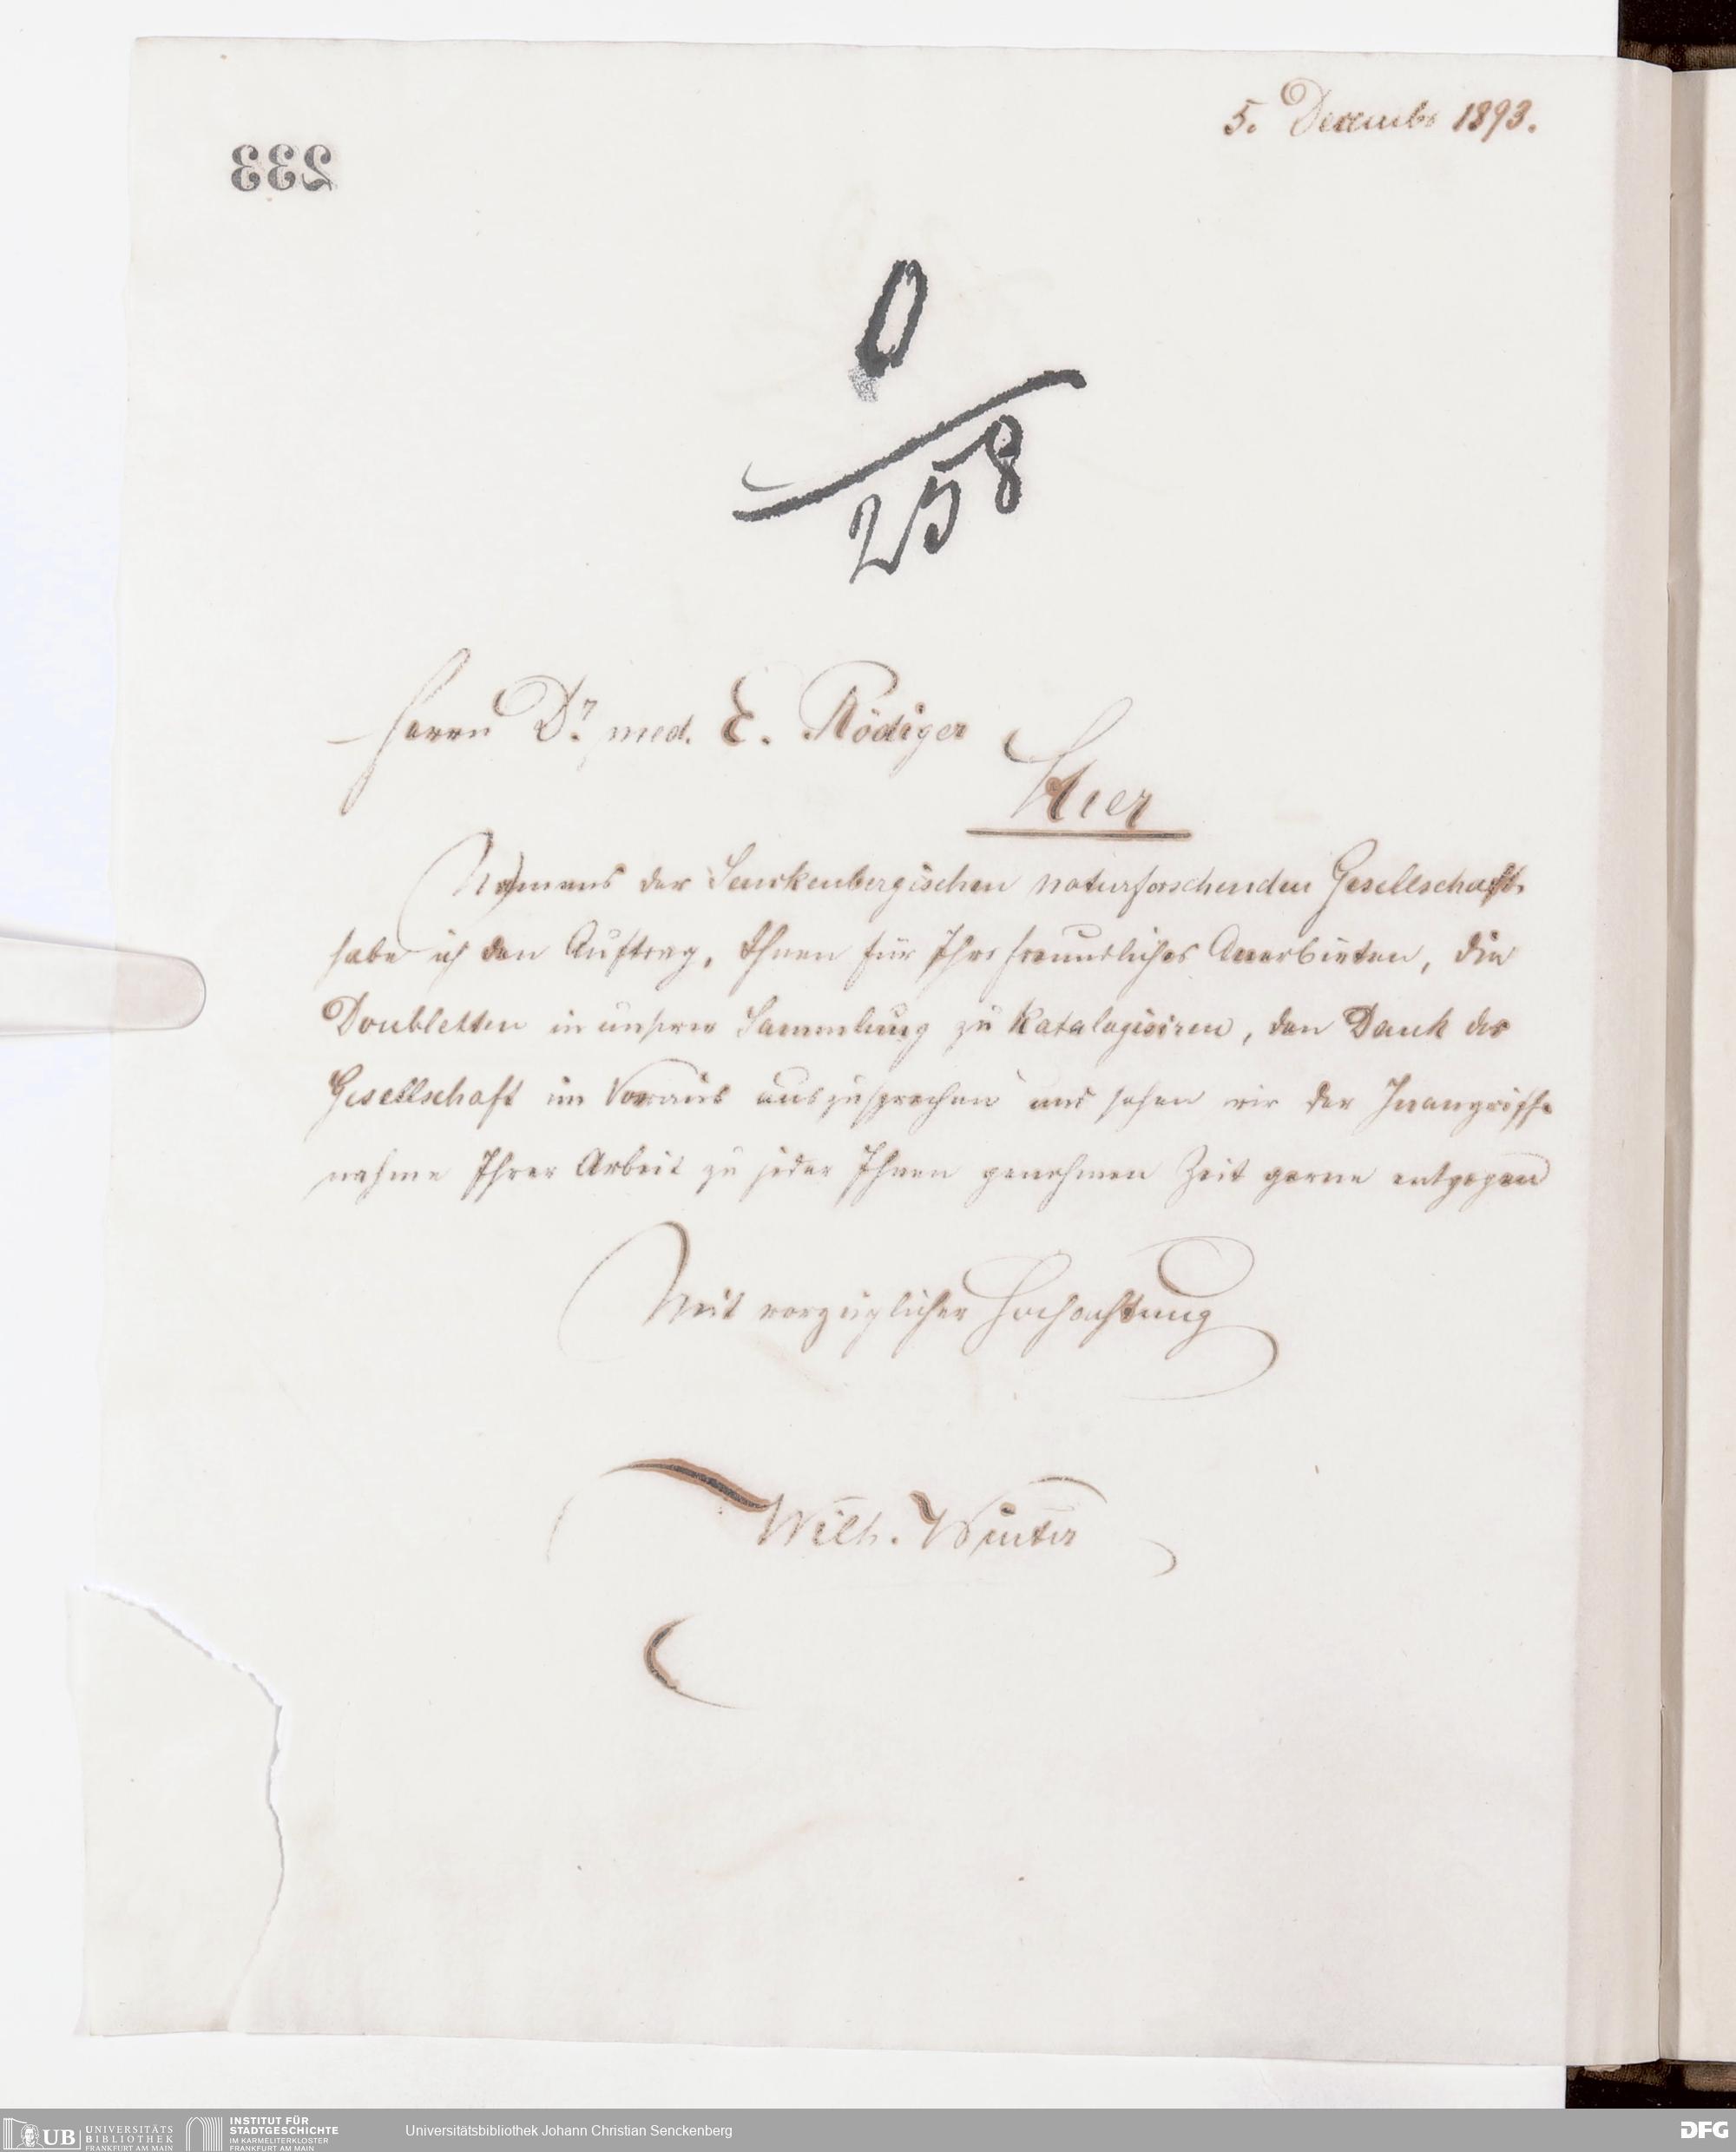 5. December 1893.
233
0
258
Herrn Dr. med. E. Rödiger
Hier
Namens der Senckenbergischen naturforschenden Gesellschaft
habe ich den Auftrag, Ihnen für Ihr freundliches Anerbieten, die
Doubletten in unserer Sammlung zu katalogisiren, den Dank der
Gesellschaft im Voraus auszusprechen und sehen wir der Inangriff-
nahme Ihrer Arbeit zu jeder Ihnen genehmen Zeit gerne entgegen
Mit vorzüglicher Hochachtung
Wilh. Winter
UB UNIVERSITÄTS
BIBLIOTHEK
FRANKFURT AM MAIN
INSTITUT FÜR
STADTGESCHICHTE
IM KARMELITERKLOSTER
FRANKFURT AM MAIN
Universitätsbibliothek Johann Christian Senckenberg
DFG